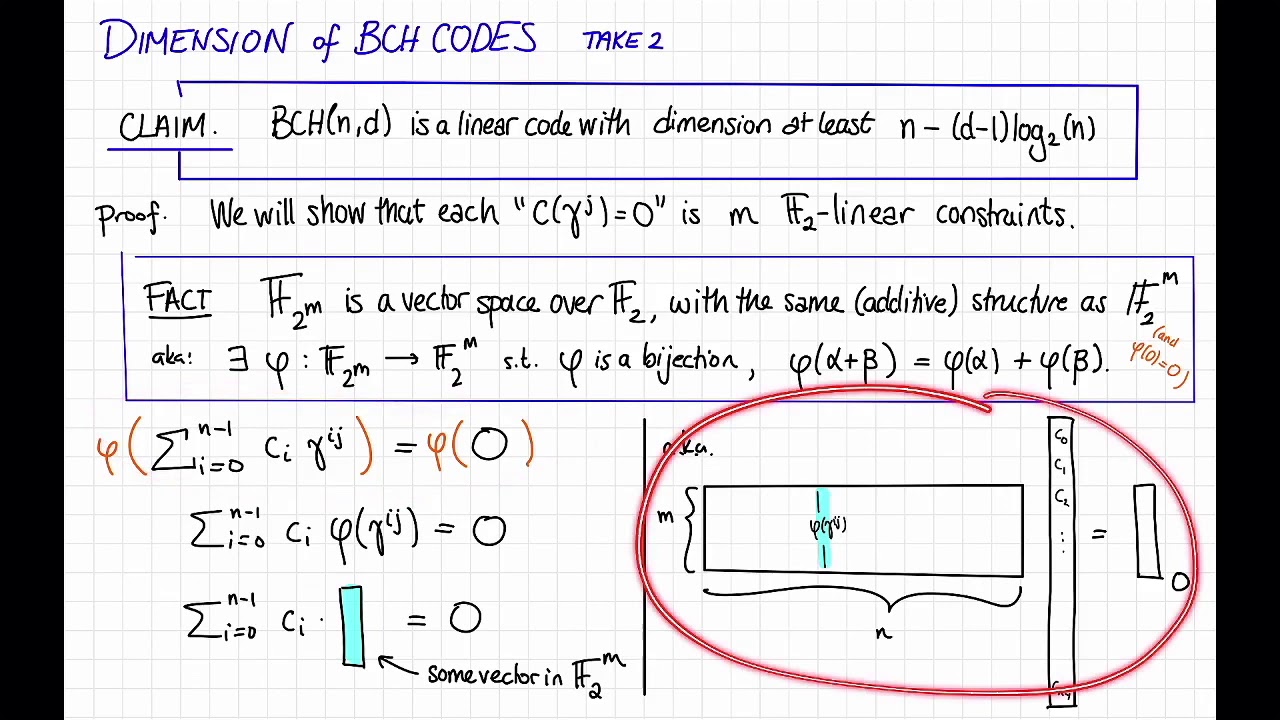 DIMENSION of BCH CODES TAKE 2
CLAIM. BCH(n,d) is a linear code with dimension at least n - (d-1)log₂(n)
Proof. We will show that each "C(γʲ)=0" is m 𝔽₂-linear constraints.
FACT 𝔽₂ᵐ is a vector space over 𝔽₂, with the same (additive) structure as 𝔽₂^m
aka: ∃ φ : 𝔽₂ᵐ → 𝔽₂^m s.t. φ is a bijection, φ(α+β) = φ(α) + φ(β). (and φ(0)=0)
φ( ∑_{i=0}^{n-1} c_i γ^{ij} ) = φ( 0 )
∑_{i=0}^{n-1} c_i φ(γ^{ij}) = 0
∑_{i=0}^{n-1} c_i · = 0
some vector in 𝔽₂^m
a.k.a.
m { φ(γ^{ij})
n
c₀
c₁
c₂
⋮
c_{n-1}
= 0